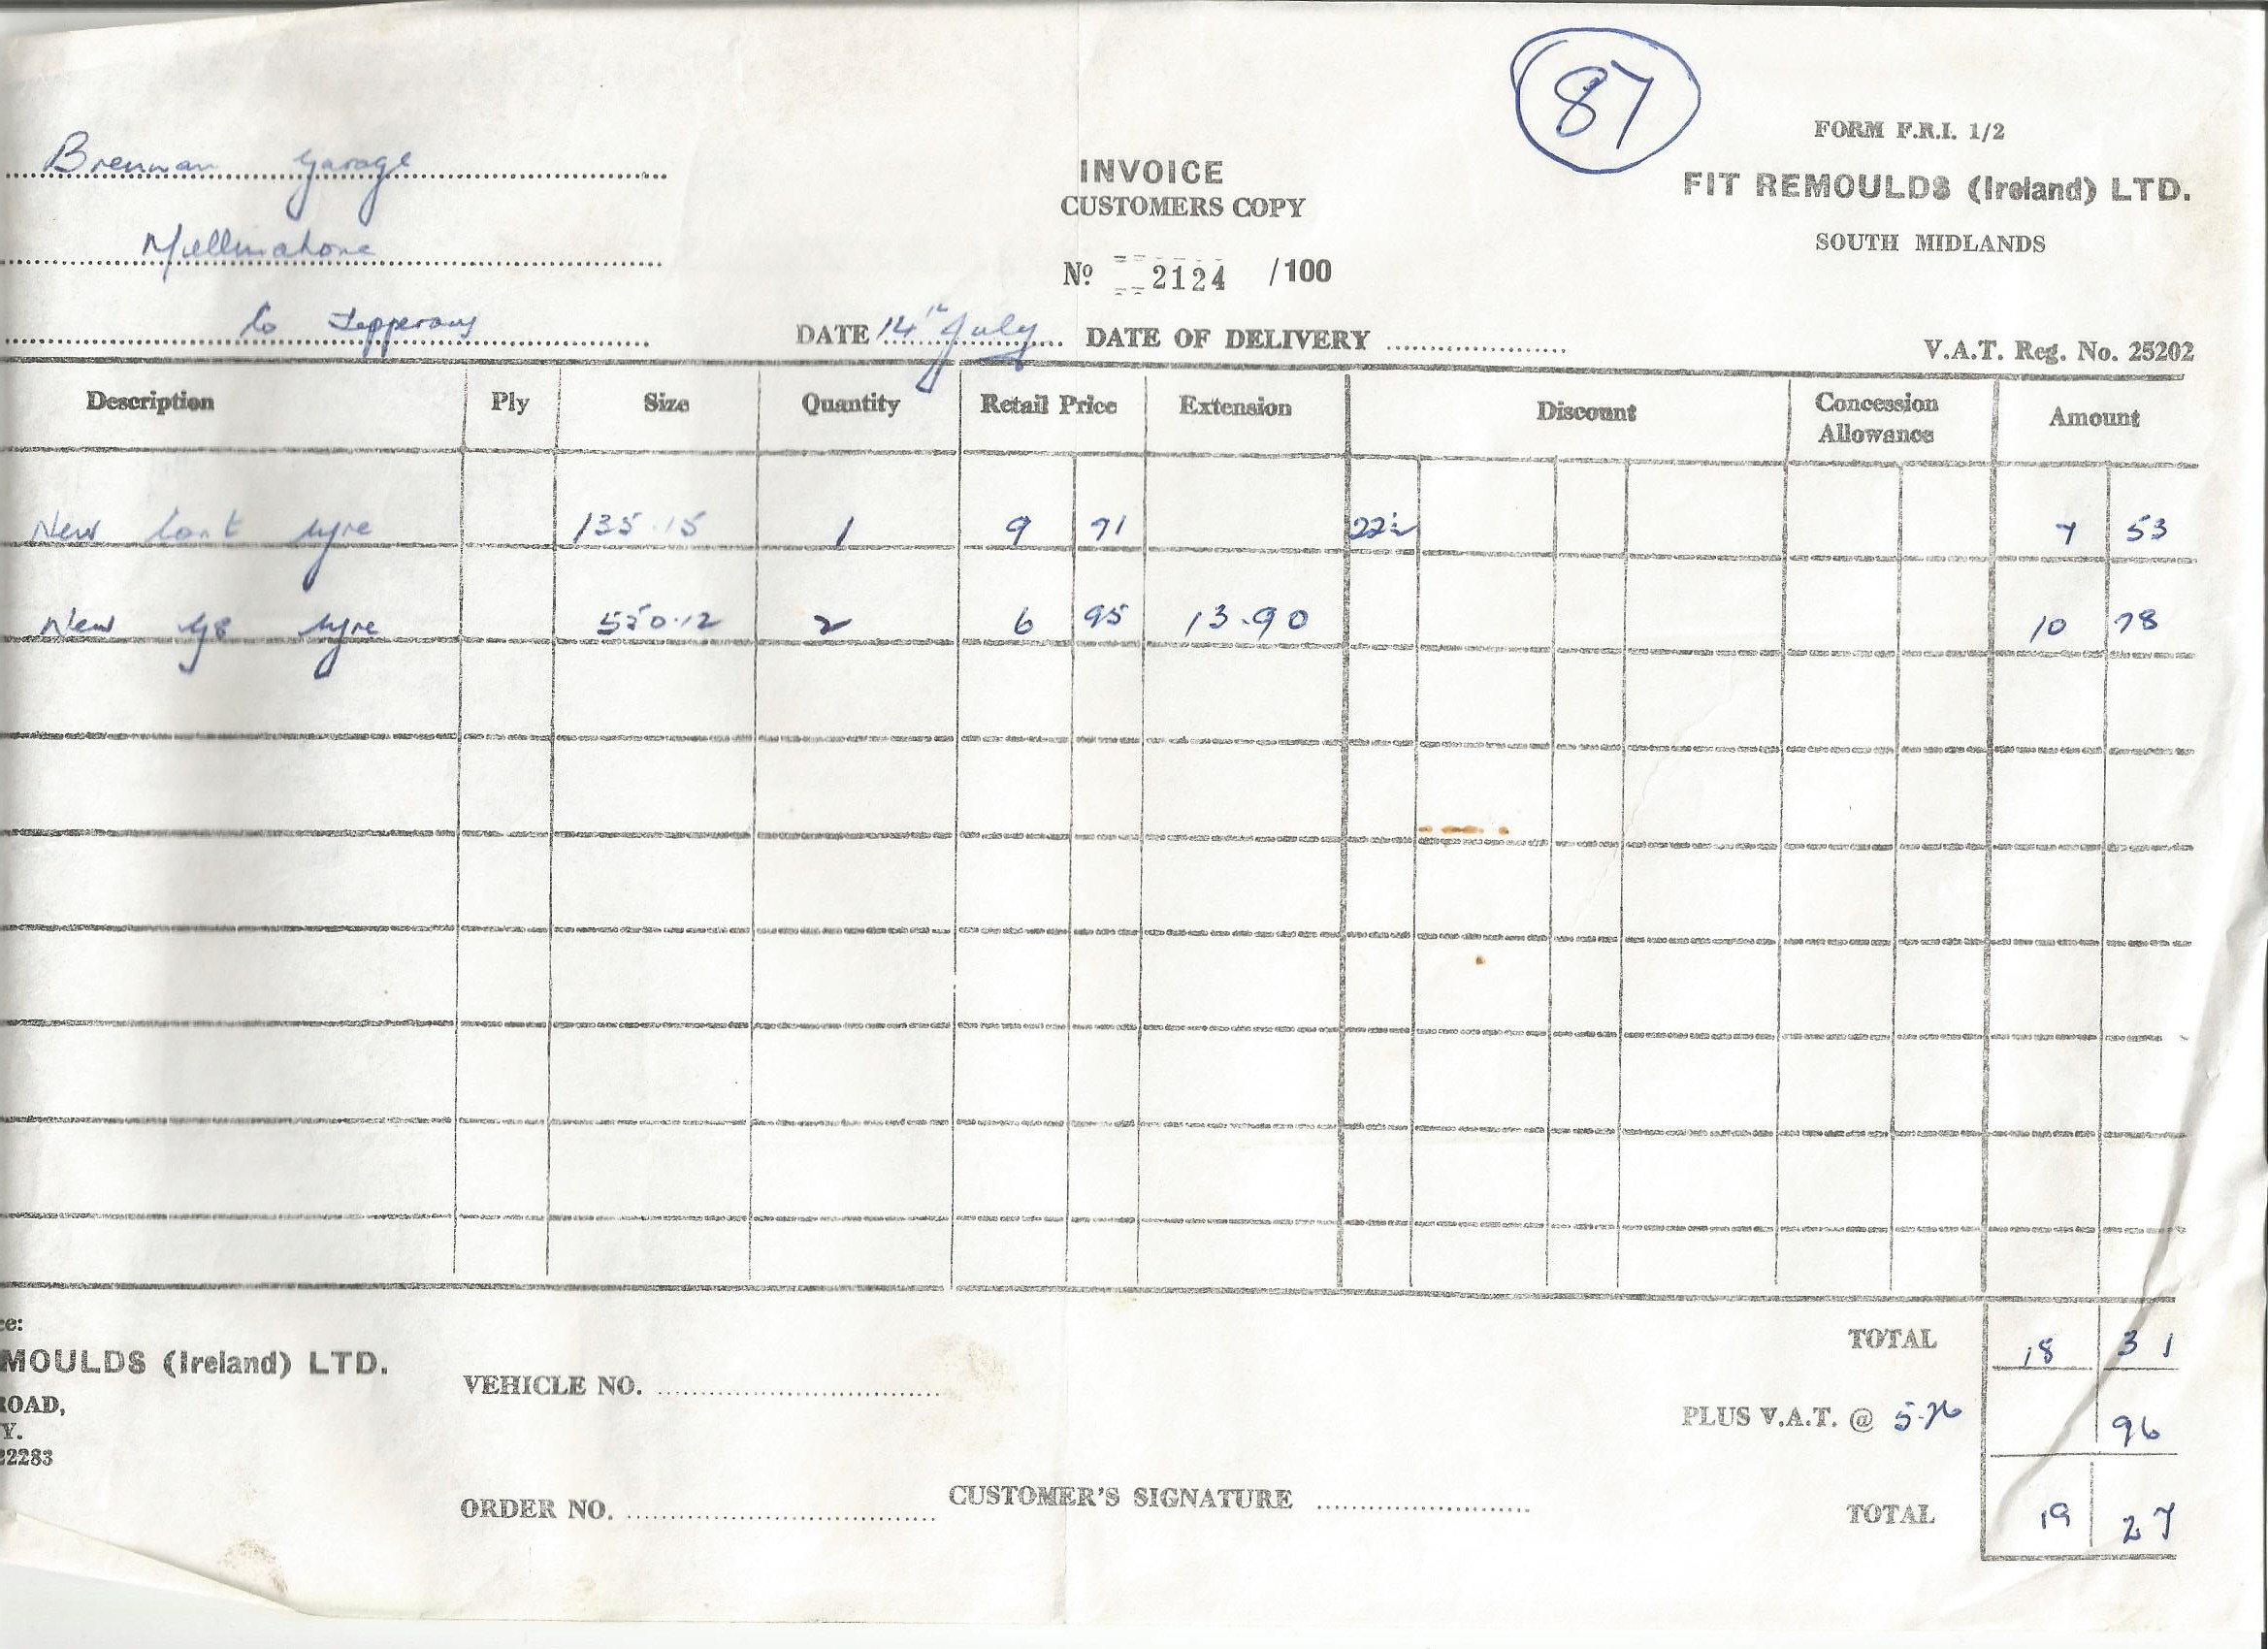 87
FORM F.R.I. 1/2
Brennan Garage
INVOICE
FIT REMOULDS (Ireland) LTD.
CUSTOMERS COPY
Mullinahone
SOUTH MIDLANDS
No 2124 /100
Co Tipperary
DATE 14th July DATE OF DELIVERY
V.A.T. Reg. No. 25202
Description Ply Size Quantity Retail Price Extension Discount Concession Allowance Amount
New Cont tyre 135.15 1 9 71 22½ 7 53
New G8 tyre 550.12 2 6 95 13.90 10 78
ce:
MOULDS (Ireland) LTD.
OAD,
Y.
22283
VEHICLE NO.
ORDER NO.
CUSTOMER'S SIGNATURE
TOTAL 18 31
PLUS V.A.T. @ 5.26 96
TOTAL 19 27